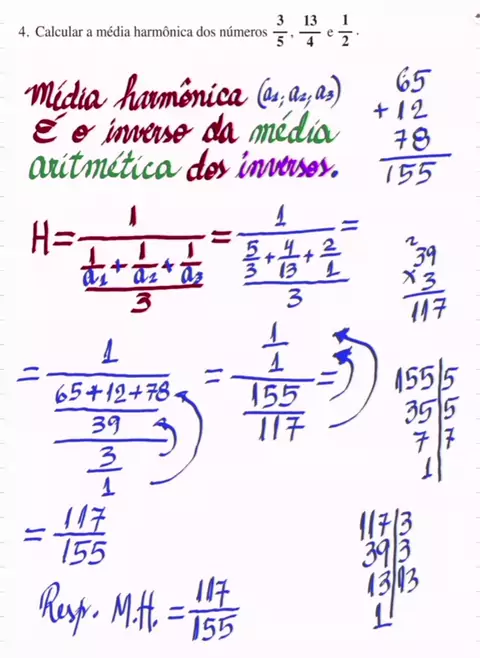 4. Calcular a média harmônica dos números 3/5, 13/4 e 1/2.
Média harmônica (a₁; a₂; a₃)
É o inverso da média
aritmética dos inversos.
65
+ 12
78
155
H = 1/((1/a₁ + 1/a₂ + 1/a₃)/3) = 1/((5/3 + 4/13 + 2/1)/3) =
2
39
× 3
117
= 1/(((65+12+78)/39)/(3/1)) = (1/1)/(155/117) =
155|5
35|5
7|7
1|
= 117/155
117|3
39|3
13|13
1|
Resp. M.H. = 117/155